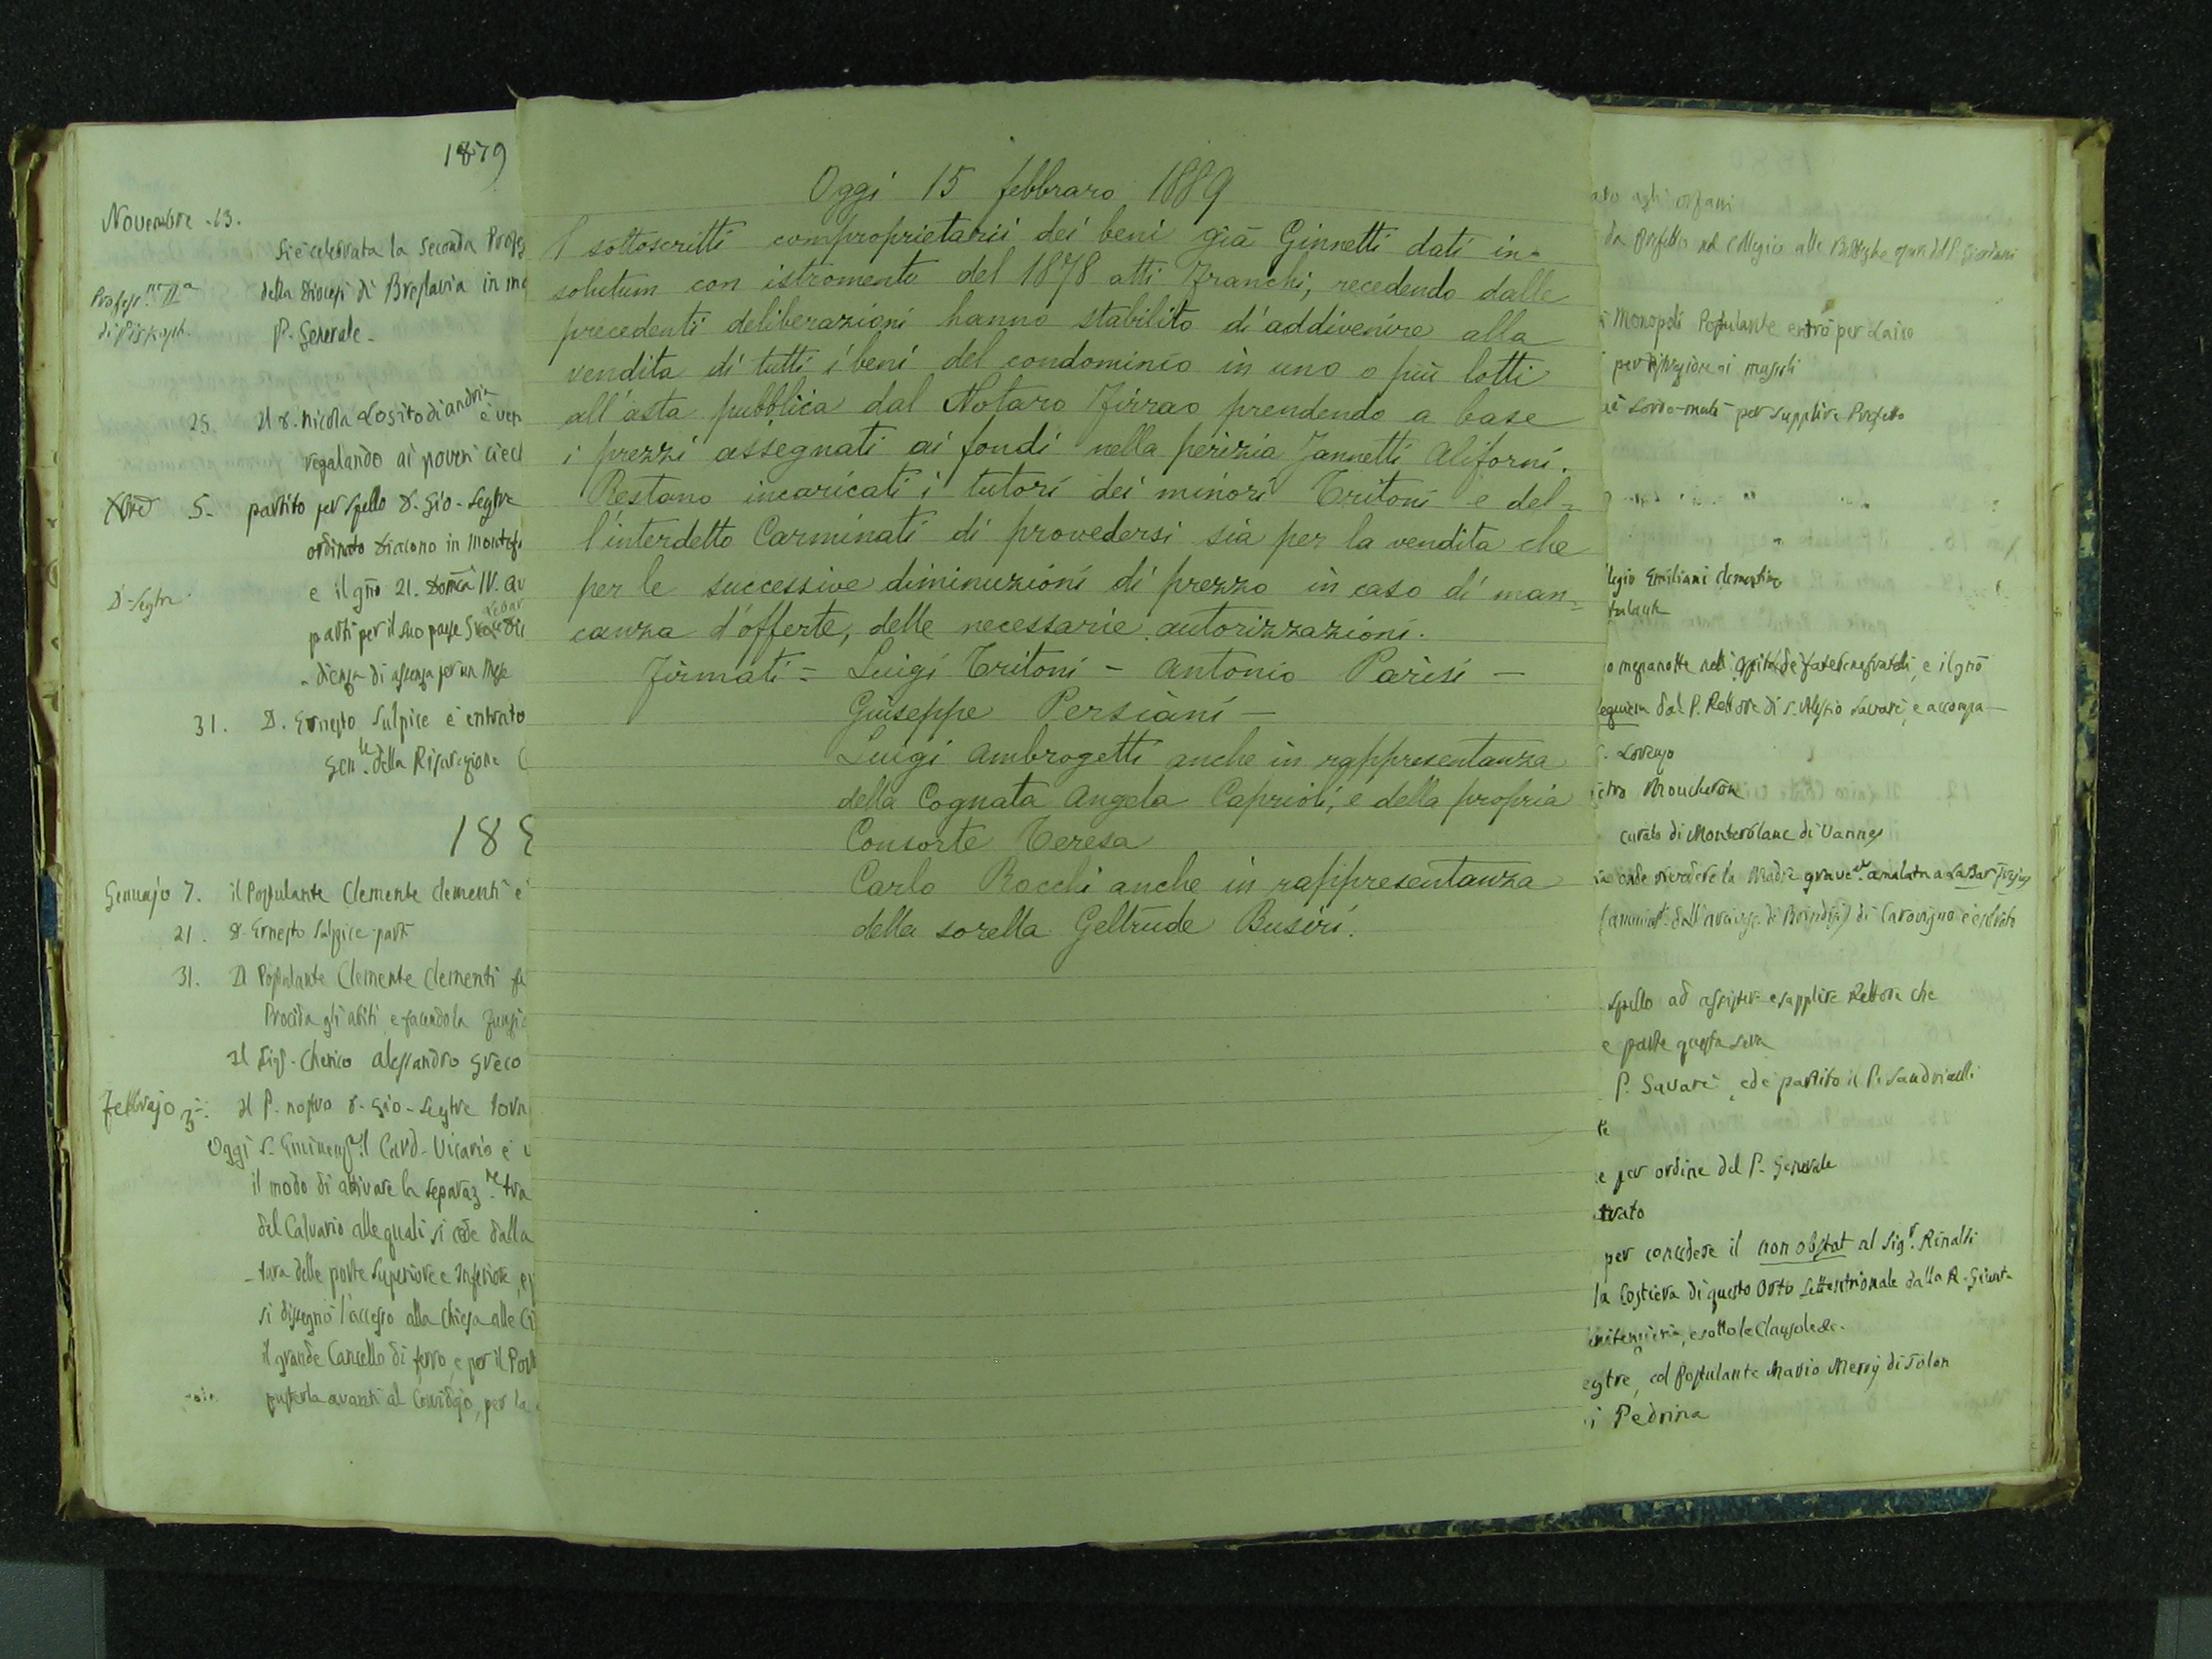 1879
Novembre - 13.
Si è celebrata la Seconda Profes
Profess.ne IIa
della Diocesi di Breslavia in
P. Generale -
25. Il S. Nicola Losito di andria è ven
regalando ai poveri ciech
5. partito per Spello D. Gio - Segtre
ordinato Diacono in
D. Segtre
e il gño 21. IV. av
partì per il suo paese
- dienza di assenza per un mese
31. D. Ernesto Sulpice è entrato
Gen.le della Riparazione
188
Gennajo 7. il Postulante Clemente Clementi è
21. D. Ernesto Sulpice partì
31. Il Postulante Clemente Clementi
Procida gli abiti e facendo la funzi
Il Sig. Cherico Alessandro Greco
Febbrajo 3 Il P. nostro D. Gio - Segtre torn
Oggi S. il Card. Vicario è
il modo di attivare la separaz.ne tra
del Calvario alle quali si cede dalla
- tura delle porte Superiore e Inferiore, e
si disegnò l'accesso alla Chiesa alle
il grande Cancello di ferro, e per il
avanti al , per la
Oggi 15 febbraro 1889
I sottoscritti comproprietarii dei beni già Ginnetti dati in=
solutum con istromento del 1878 atti Franchi, recedendo dalle
precedenti deliberazioni hanno stabilito d'addivenire alla
vendita di tutti i beni del condominio in uno o più lotti
all'asta pubblica dal Notaro Firrao prendendo a base
i prezzi assegnati ai fondi nella perizia Jannetti Aliforni.
Restano incaricati i tutori dei minori Tritoni e del=
l'interdetto Carminati di provedersi sia per la vendita che
per le successive diminuzioni di prezzo in caso di man=
canza d'offerte, delle necessarie autorizzazioni.
Firmati = Luigi Tritoni - Antonio Parisi -
Giuseppe Persiani -
Luigi Ambrogetti anche in rappresentanza
della Cognata Angela Caprioli, e della propria
Consorte Teresa
Carlo Rocchi anche in rappresentanza
della sorella Geltrude Busiri.
ato agli orfani
da Prefetto nel Collegio alle
Monopoli Postulante entrò per Laico
per
sordo-muti per supplire Prefetto
legio Emiliani Clementino
o mezzanotte e il gño
dal P. Rettore di S. Alessio Savarè, e accompa-
S. Lorenzo
etro Moucheron
curato di Monterblanc di Vannes
la Madre grave.te amalata a
di Carovigno è entrato
Spello ad assistere e supplire Rettore che
e parte questa sera
P. Savarè, ed è partito il P. Sandrinelli
te
e per ordine del P. Generale
trato
per concedere il non obstat al Sig.r Rinaldi
la Costiera di questo Orto Settentrionale dalla R. Giunt-
e sotto le Clausole &c.
egtre, ed Postulante Mario Merry di Tolon
i Pedrina